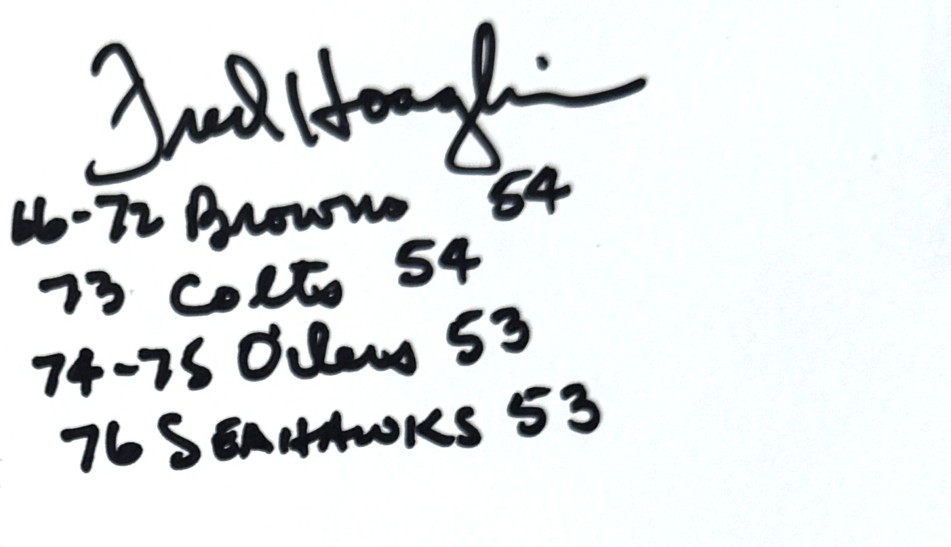 Fred Hoaglin
66-72 Browns 54
73 Colts 54
74-75 Oilers 53
76 SEAHAWKS 53